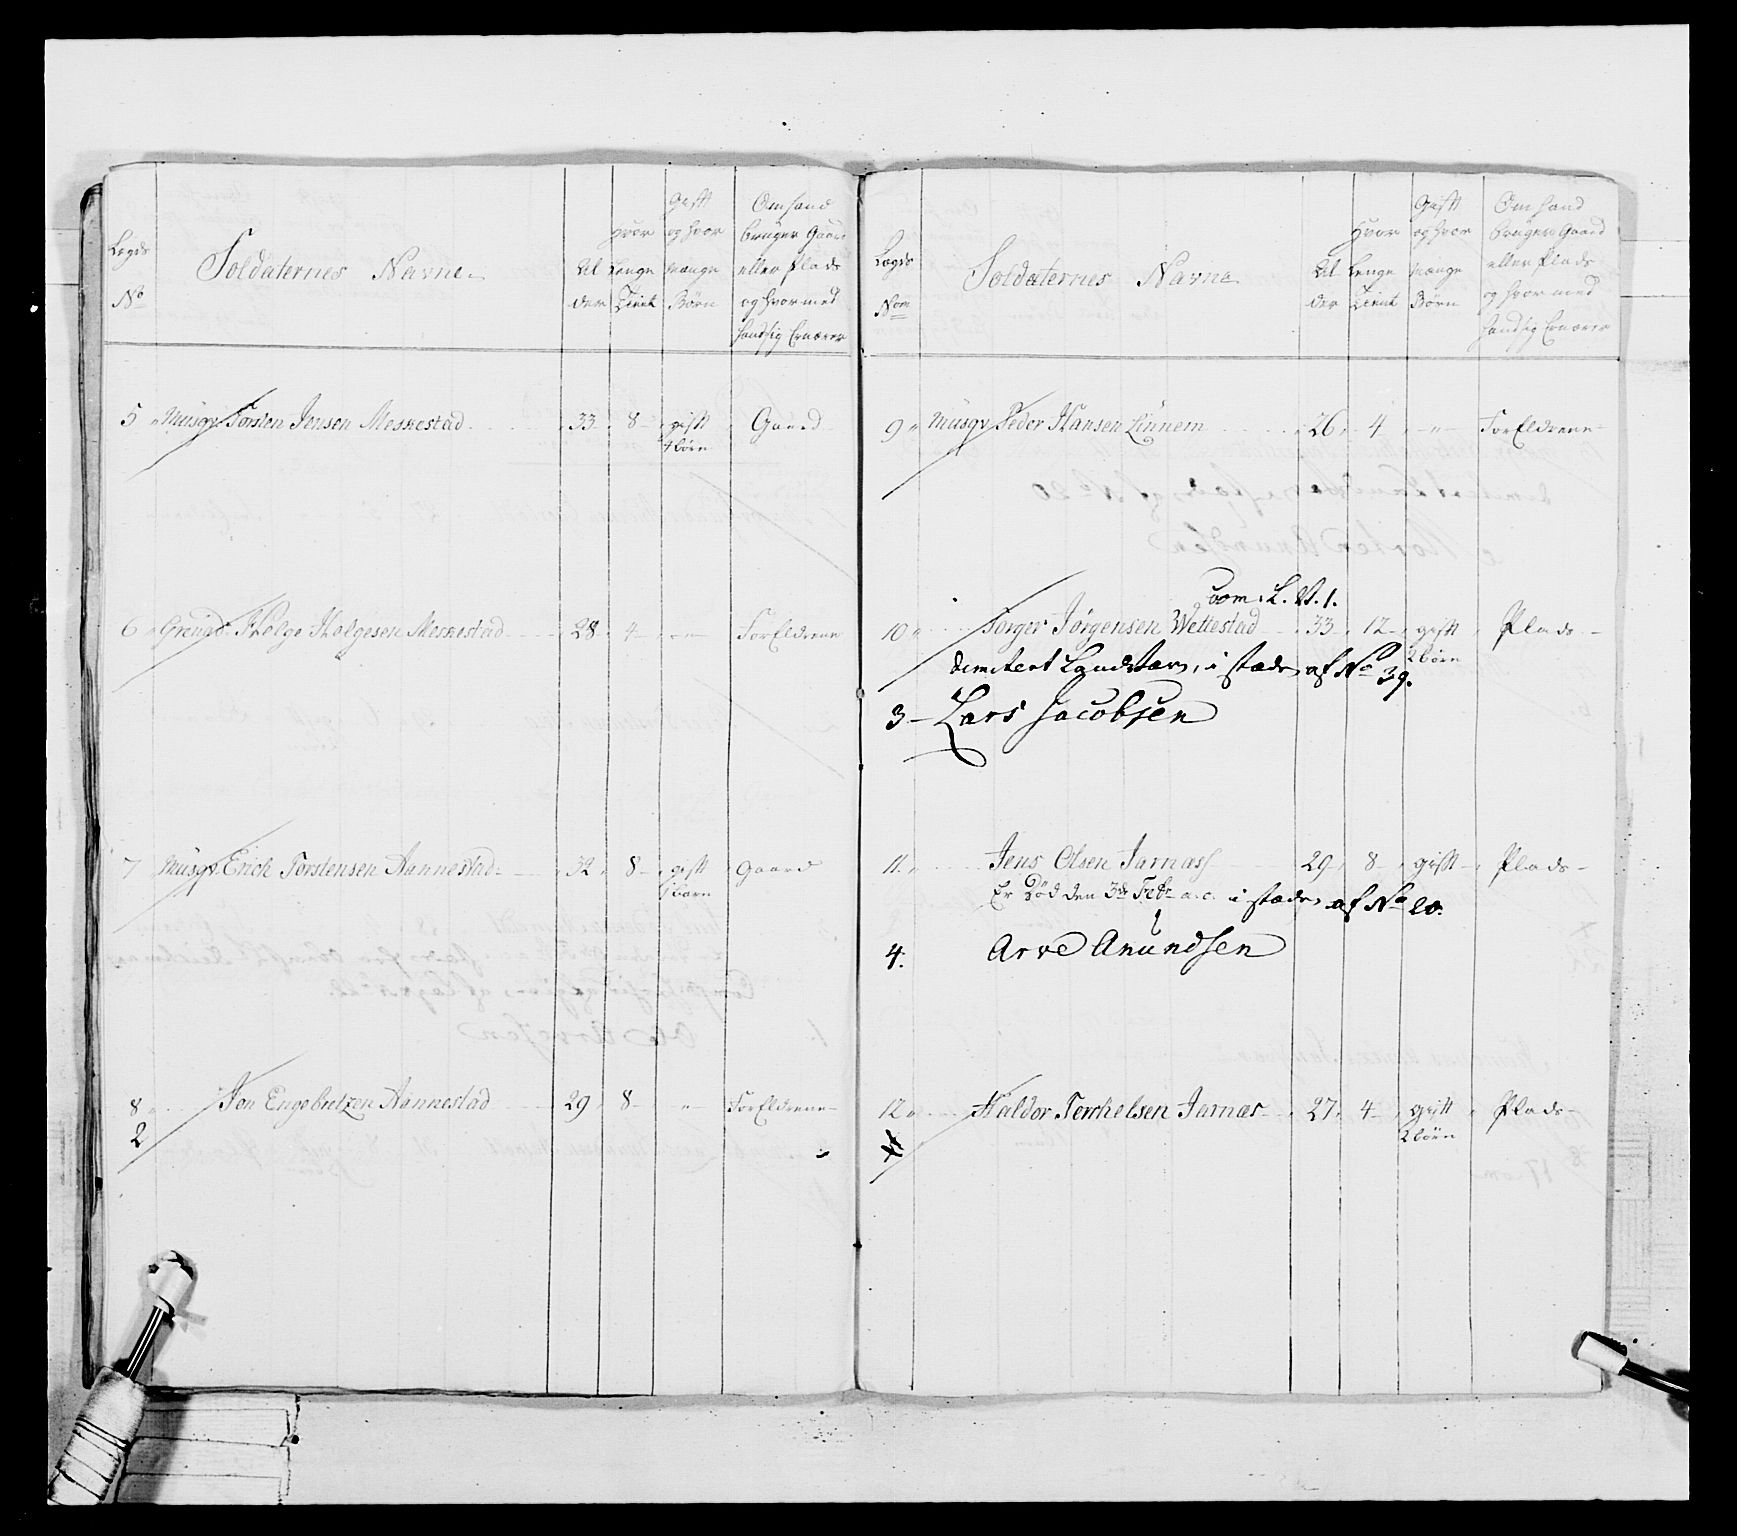 Legds No
Soldaternes Navne
Al der
Hvor Lenge Tient
Gift og Hvor mange Börn
Om hand bruger Gaard eller Plads og Hvor med hand sig Ernærer
5 Musqv. Torsten Jensen Meskestad 33 8 gift Gaard
4 börn
6 Grenad. Helge Helgesen Meskestad 28 4 " Forældrene
7 Musqv. Erich Torstensen Aannestad 32 8 gift Gaard
1 barn
8 Jon Engebretzen Aannestad 29 8 " Forældrene
2
Lægds Nom
Soldaternes Navne
Al der
Hvor Lenge Tient
Gift og Hvor mange Börn
Om hand bruger Gaard eller Plads og Hvor med hand sig Ernærer
9 Musqv. Peder Hansen Linnem 26 4 " Forældrene
com. L. No. 1.
10 Torger Jörgensen Wettestad 33 12 gift Plads
2 börn
dimitert Landværn, i stæden af No 39.
3 Lars Jacobsen
11 Jens Olsen Jarnæss 29 8 gift Plads
Er Död den 3de Febr a. c. i stæden af No 20.
4. Arve Anundsen
12 Haldor Terchelsen Jarnæs 27 4 gift Plads
2 börn